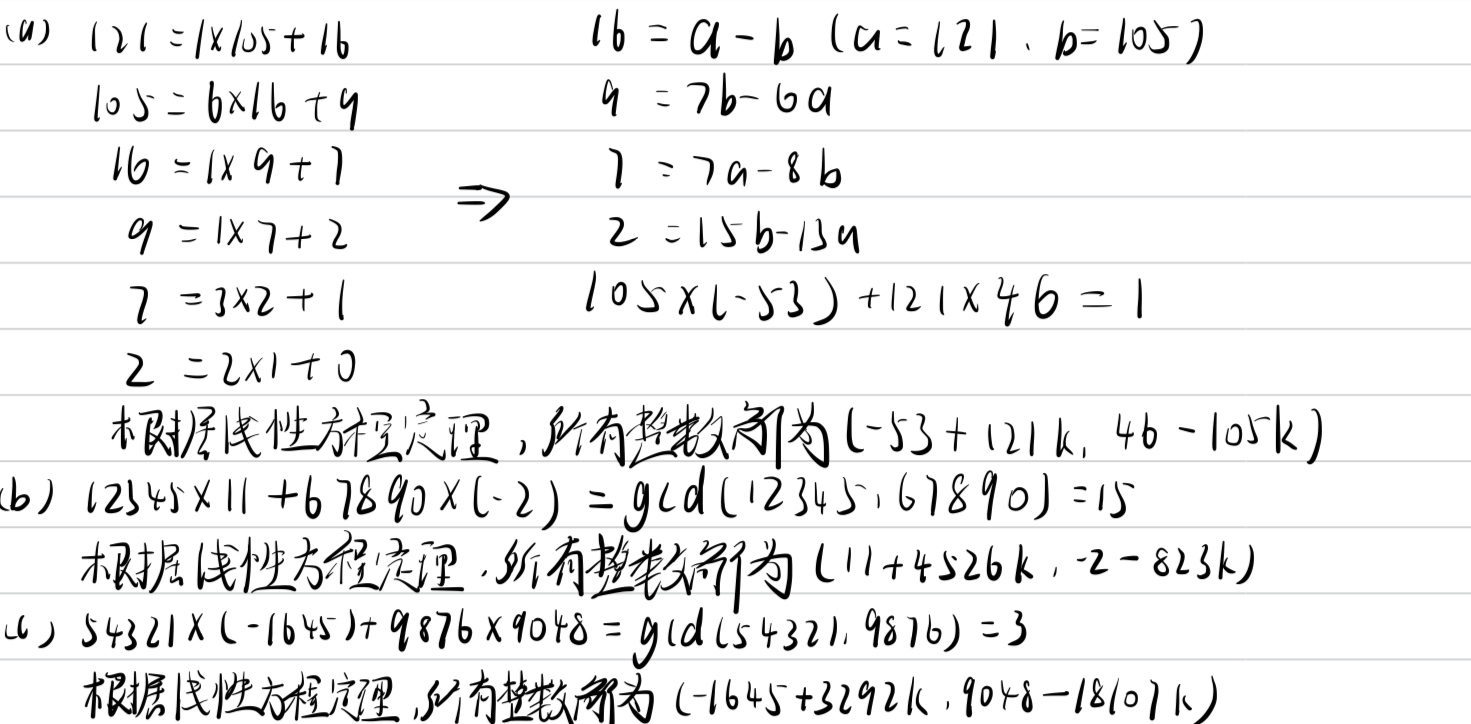 (a) 121 = 1×105 + 16    16 = a - b (a = 121, b = 105)
105 = 6×16 + 9    9 = 7b - 6a
16 = 1×9 + 7    7 = 7a - 8b
⇒
9 = 1×7 + 2    2 = 15b - 13a
7 = 3×2 + 1    105×(-53) + 121×46 = 1
2 = 2×1 + 0
根据线性方程定理,所有整数解为(-53 + 121k, 46 - 105k)
(b) 12345×11 + 67890×(-2) = gcd(12345, 67890) = 15
根据线性方程定理,所有整数解为(11 + 4526k, -2 - 823k)
(c) 54321×(-1645) + 9876×9048 = gcd(54321, 9876) = 3
根据线性方程定理,所有整数解为(-1645 + 3292k, 9048 - 18107k)